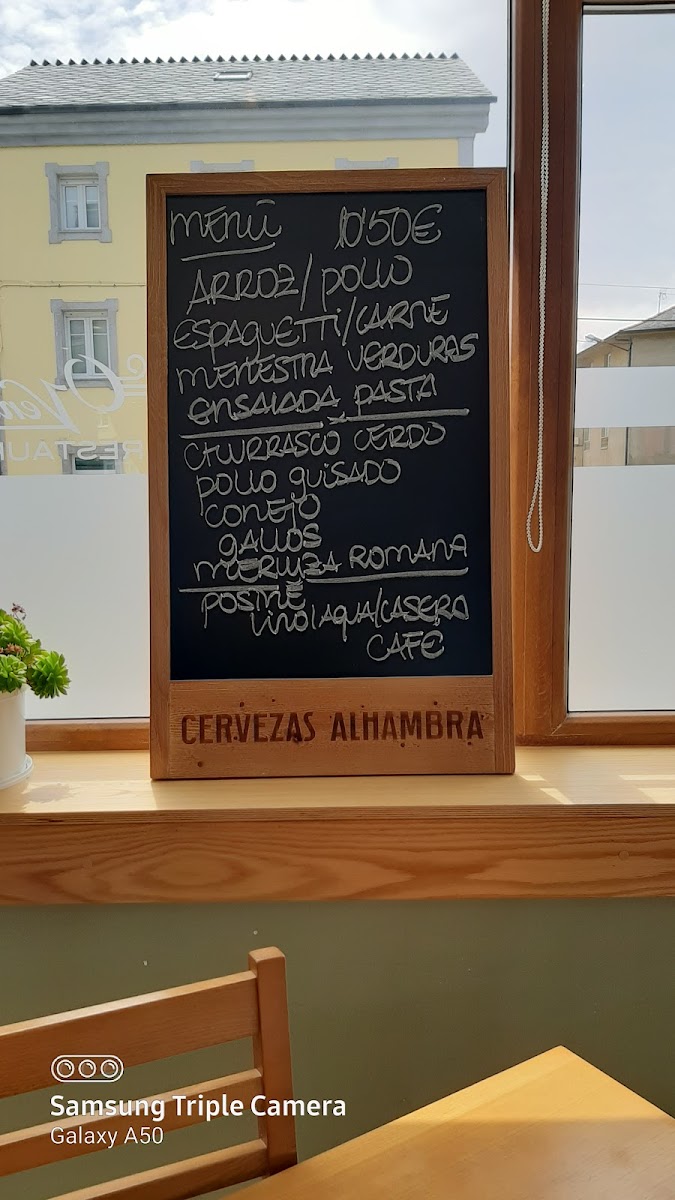 MENÚ 10'50€
ARROZ/POLLO
ESPAGUETTI/CARNE
MENESTRA VERDURAS
ENSALADA PASTA
CHURRASCO CERDO
POLLO GUISADO
CONEJO
GALLOS
MERLUZA ROMANA
POSTRE
VINO/AGUA/CASERA
CAFE
CERVEZAS ALHAMBRA
RESTAU
Samsung Triple Camera
Galaxy A50